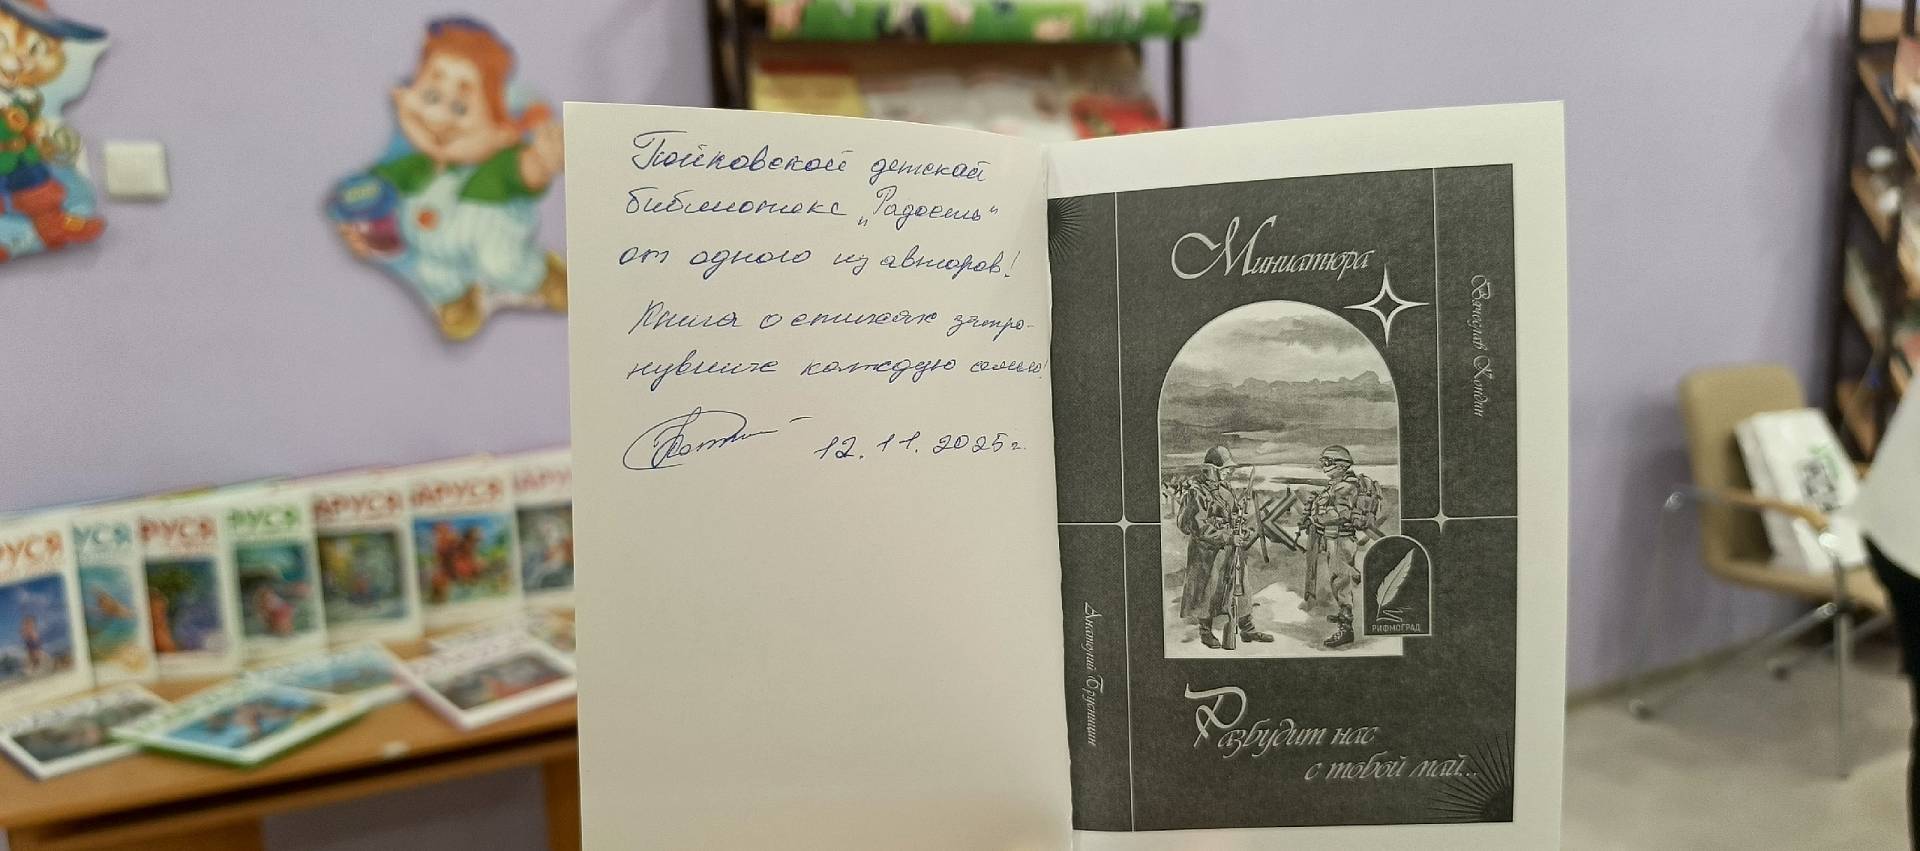 Пойковской детской
библиотеке „Радость“
от одного из авторов!
Книга о стихах затро-
нувшие каждую семью!
12.11.2025г.
Миниатюра
Вячеслав Хондин
Анатолий Брустин
РИФМОГРАД
Разбудит нас
с тобой май...
РУСЯ
УСЯ
РУСЯ
РУСЯ
АРУСЯ
АРУСЯ
АРУ